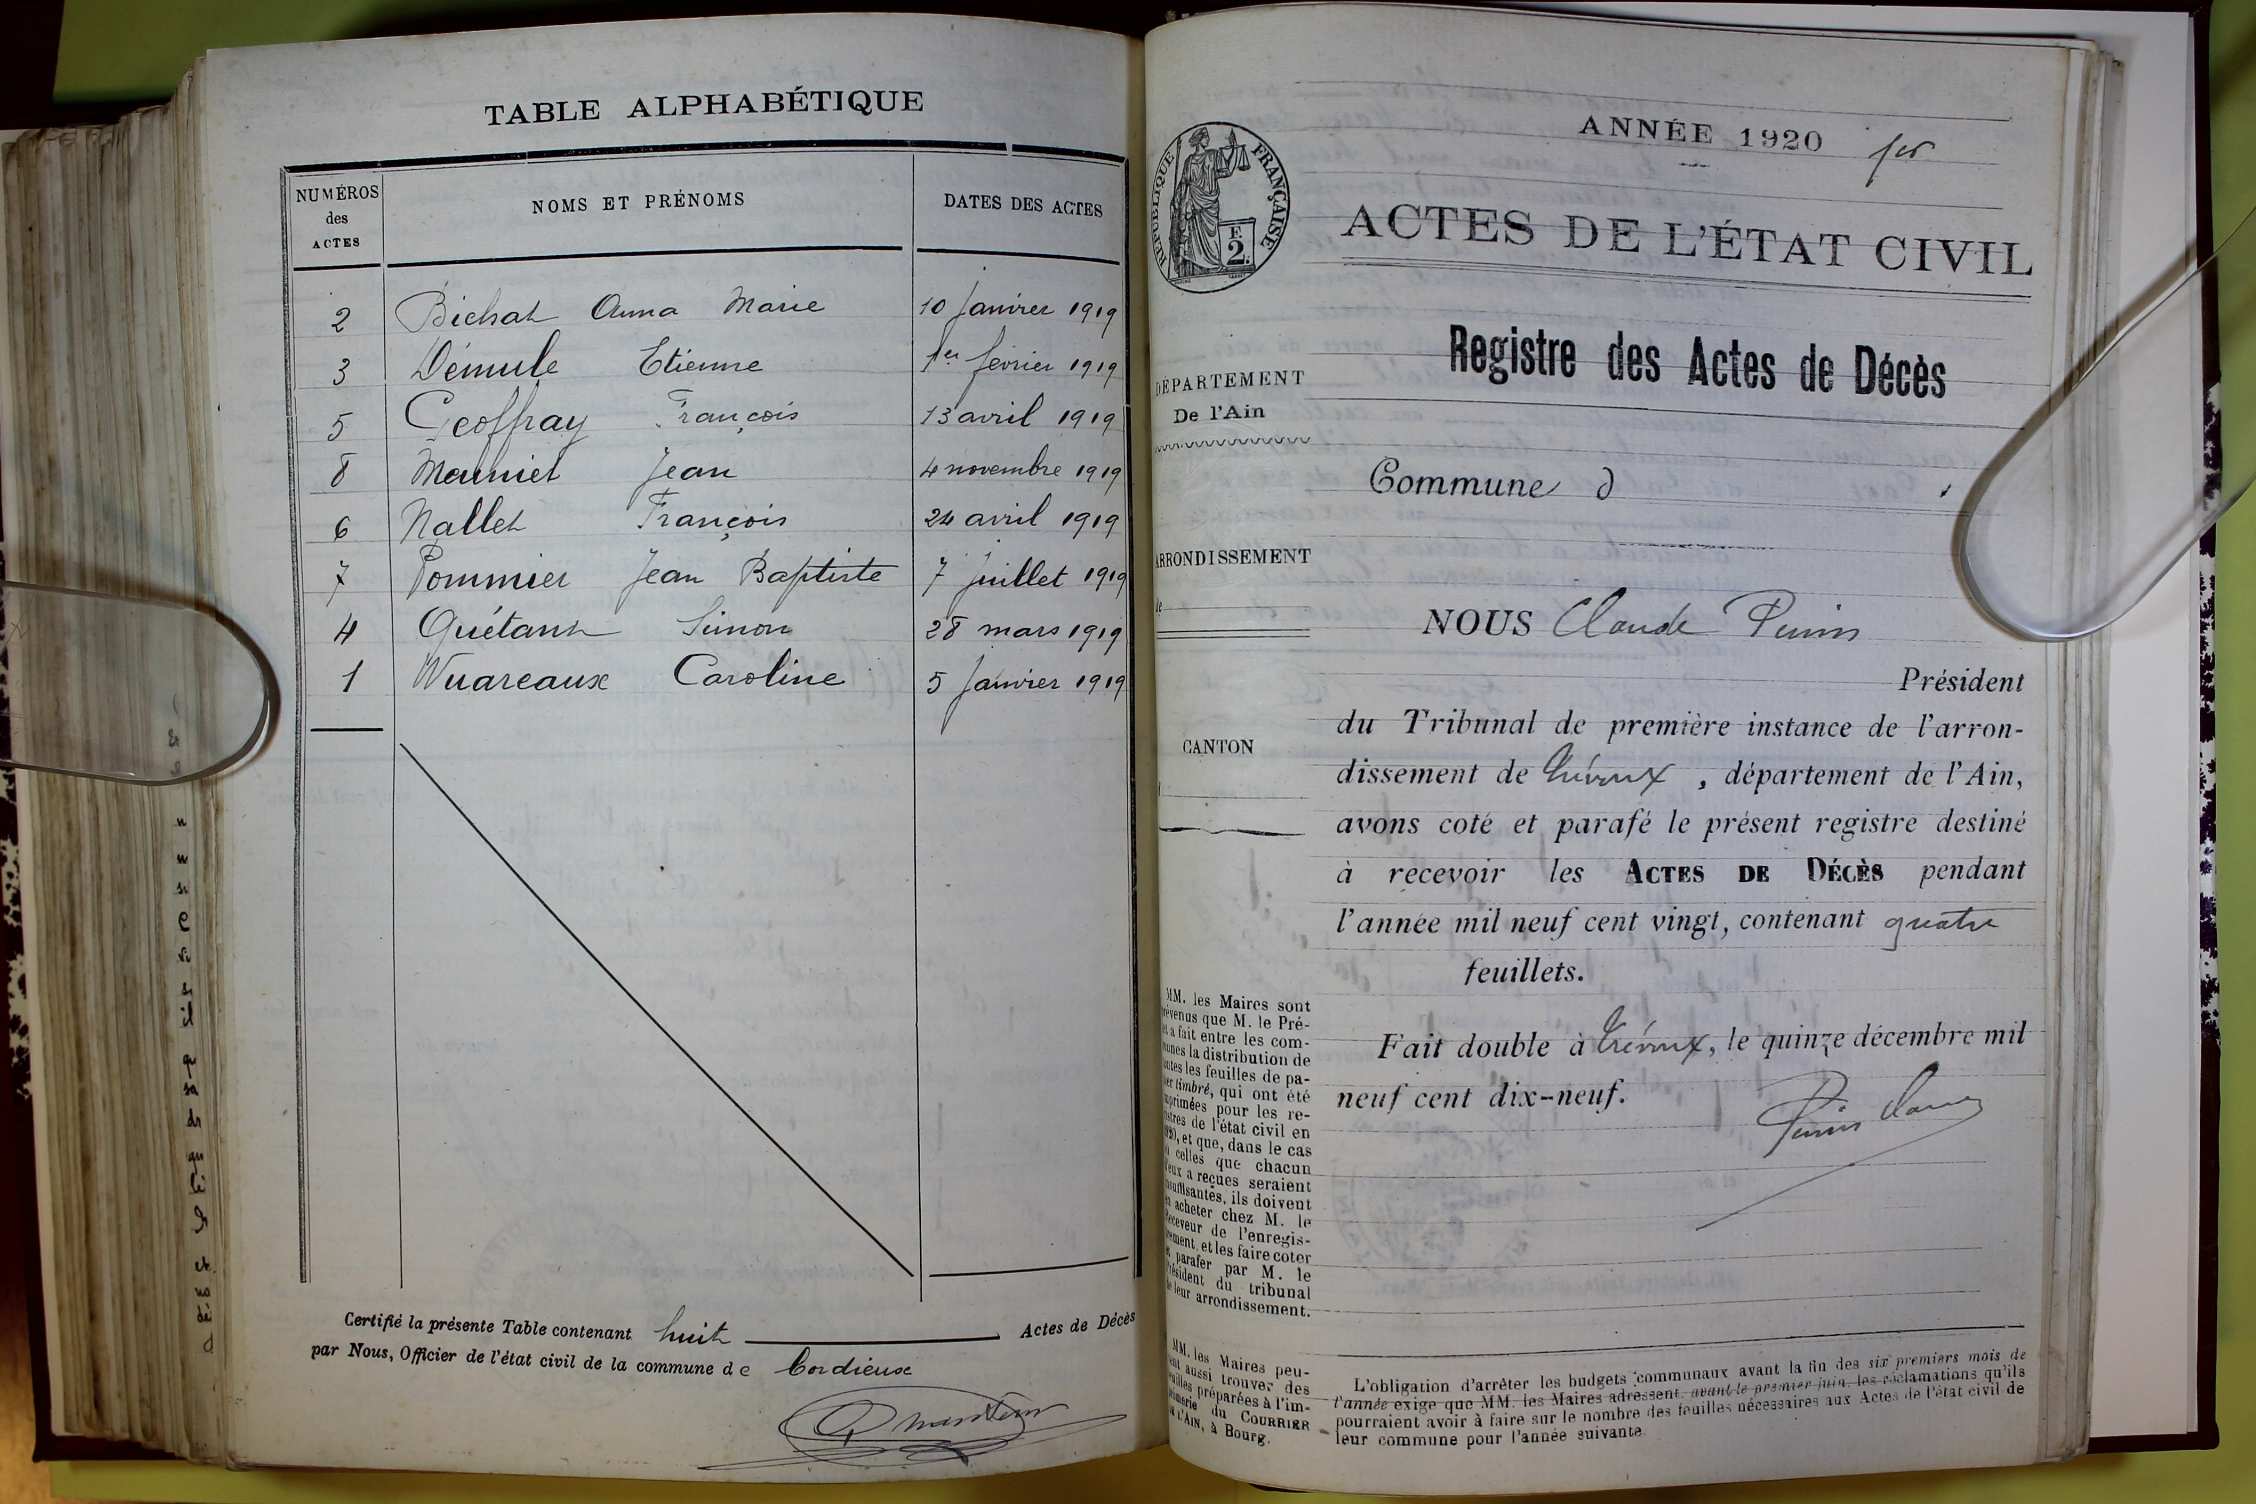 TABLE ALPHABÉTIQUE
NUMÉROS des ACTES
NOMS ET PRÉNOMS
DATES DES ACTES
2 Bichat Anna Marie 10 Janvier 1919
3 Démule Etienne 1er février 1919
5 Geoffray François 13 avril 1919
8 Meunier Jean 4 novembre 1919
6 Nallet François 24 avril 1919
7 Pommier Jean Baptiste 7 Juillet 1919
4 Quétant Simon 28 mars 1919
1 Wuareaux Caroline 5 Janvier 1919
Certifié la présente Table contenant huit Actes de Décès
par Nous, Officier de l'état civil de la commune de Cordieux
ANNÉE 1920
RÉPUBLIQUE FRANÇAISE
F.
2.
ACTES DE L'ÉTAT CIVIL
Registre des Actes de Décès
DÉPARTEMENT
De l'Ain
Commune d
ARRONDISSEMENT
NOUS Claude
Président
du Tribunal de première instance de l'arron-
dissement de Trévoux, département de l'Ain,
avons coté et parafé le présent registre destiné
à recevoir les ACTES DE DÉCÈS pendant
l'année mil neuf cent vingt, contenant quatre
feuillets.
Fait double à Trévoux, le quinze décembre mil
neuf cent dix-neuf.
CANTON
MM. les Maires sont
prévenus que M. le Pré-
fet a fait entre les com-
munes la distribution de
toutes les feuilles de pa-
pier timbré, qui ont été
imprimées pour les re-
gistres de l'état civil en
1920, et que, dans le cas
où celles que chacun
d'eux a reçues seraient
insuffisantes, ils doivent
en acheter chez M. le
Receveur de l'enregis-
trement, et les faire coter
et parafer par M. le
Président du tribunal
de leur arrondissement.
MM. les Maires peu-
vent aussi trouver des
feuilles préparées à l'im-
primerie du COURRIER
DE L'AIN, à Bourg.
L'obligation d'arrêter les budgets communaux avant la fin des six premiers mois de
l'année exige que MM. les Maires adressent, avant le premier juin, les réclamations qu'ils
pourraient avoir à faire sur le nombre des feuilles nécessaires aux Actes de l'état civil de
leur commune pour l'année suivante.